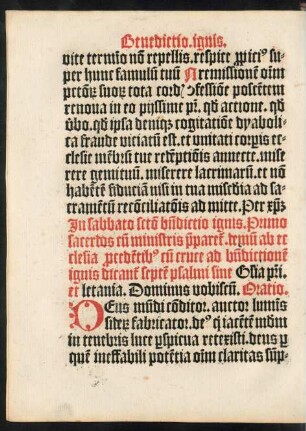 Benedictio.ignis.
vite termino nõ repellis.respice ꝓpiciꝰ su⸗
per hunc famulũ tuũ N remissionẽ oĩm
pctõꝝ suoꝝ tota cord᷒ ꝯfessiõe poscẽtem
renoua in eo pijssime pr̃. qđ actione. qđ
v̾bo. qđ ipsa deniqꝫ cogitatiõe dyaboli⸗
ca fraude viciatũ est. et vnitati corpis ec⸗
clesie mẽbrũ tue redẽptiõis annecte. mise
rere gemituũ. miserere lacrimarũ. et nõ
habẽtẽ fiduciã nisi in tua misc̃dia ad sa⸗
cramẽtũ recõciliatõis ad mitte. Per xp̃ꝫ
In sabbato sctõ bñdictio ignis. Primo
sacerdos cũ ministris ꝑparet. 
eclesia p̃cedẽtibꝰ cũ cruce ad bñdictionẽ
ignis dicant septẽ psalmi sine Glia pr̃i.
et letania. Dominus vobiscũ. Oratio.
DEus mũdi cõditor. auctor luminis
siderꝝ fabricator. deꝰ q̃ iacẽtẽ mũdũ
in tenebris luce ꝑspicua retexisti. deus ꝑ
quẽ ineffabili potẽtia oĩm claritas sũp⸗